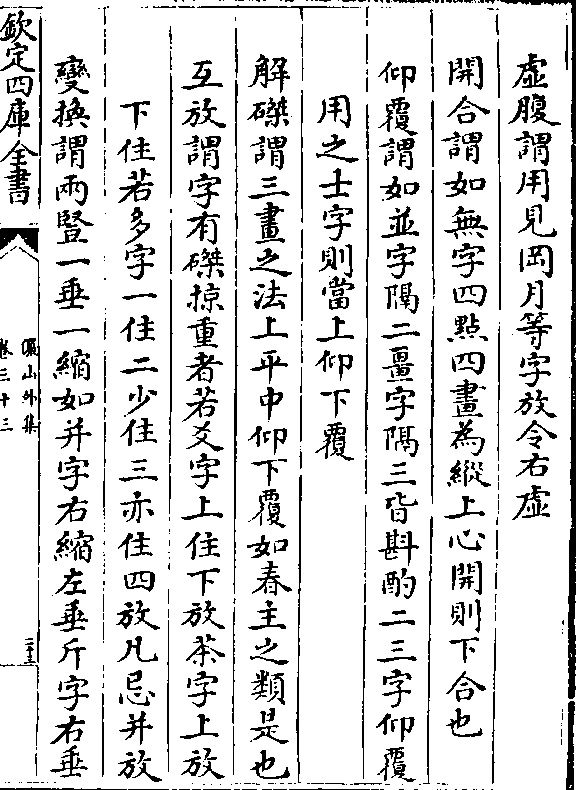 虛腹謂用見岡月等字放令右虛
開合謂如無字四點四畫為縱上心開則下合也
仰覆謂如並字隔二畺字隔三皆斟酌二三字仰覆
用之士字則當上仰下覆
解磔謂三畫之法上平中仰下覆如春主之類是也
互放謂字有磔掠重者若爻字上住下放茶字上放
下住若多字一住二少住三亦住四放凡忌并放
變換謂兩豎一垂一縮如并字右縮左垂斤字右垂
欽定四庫全書
卷三十三